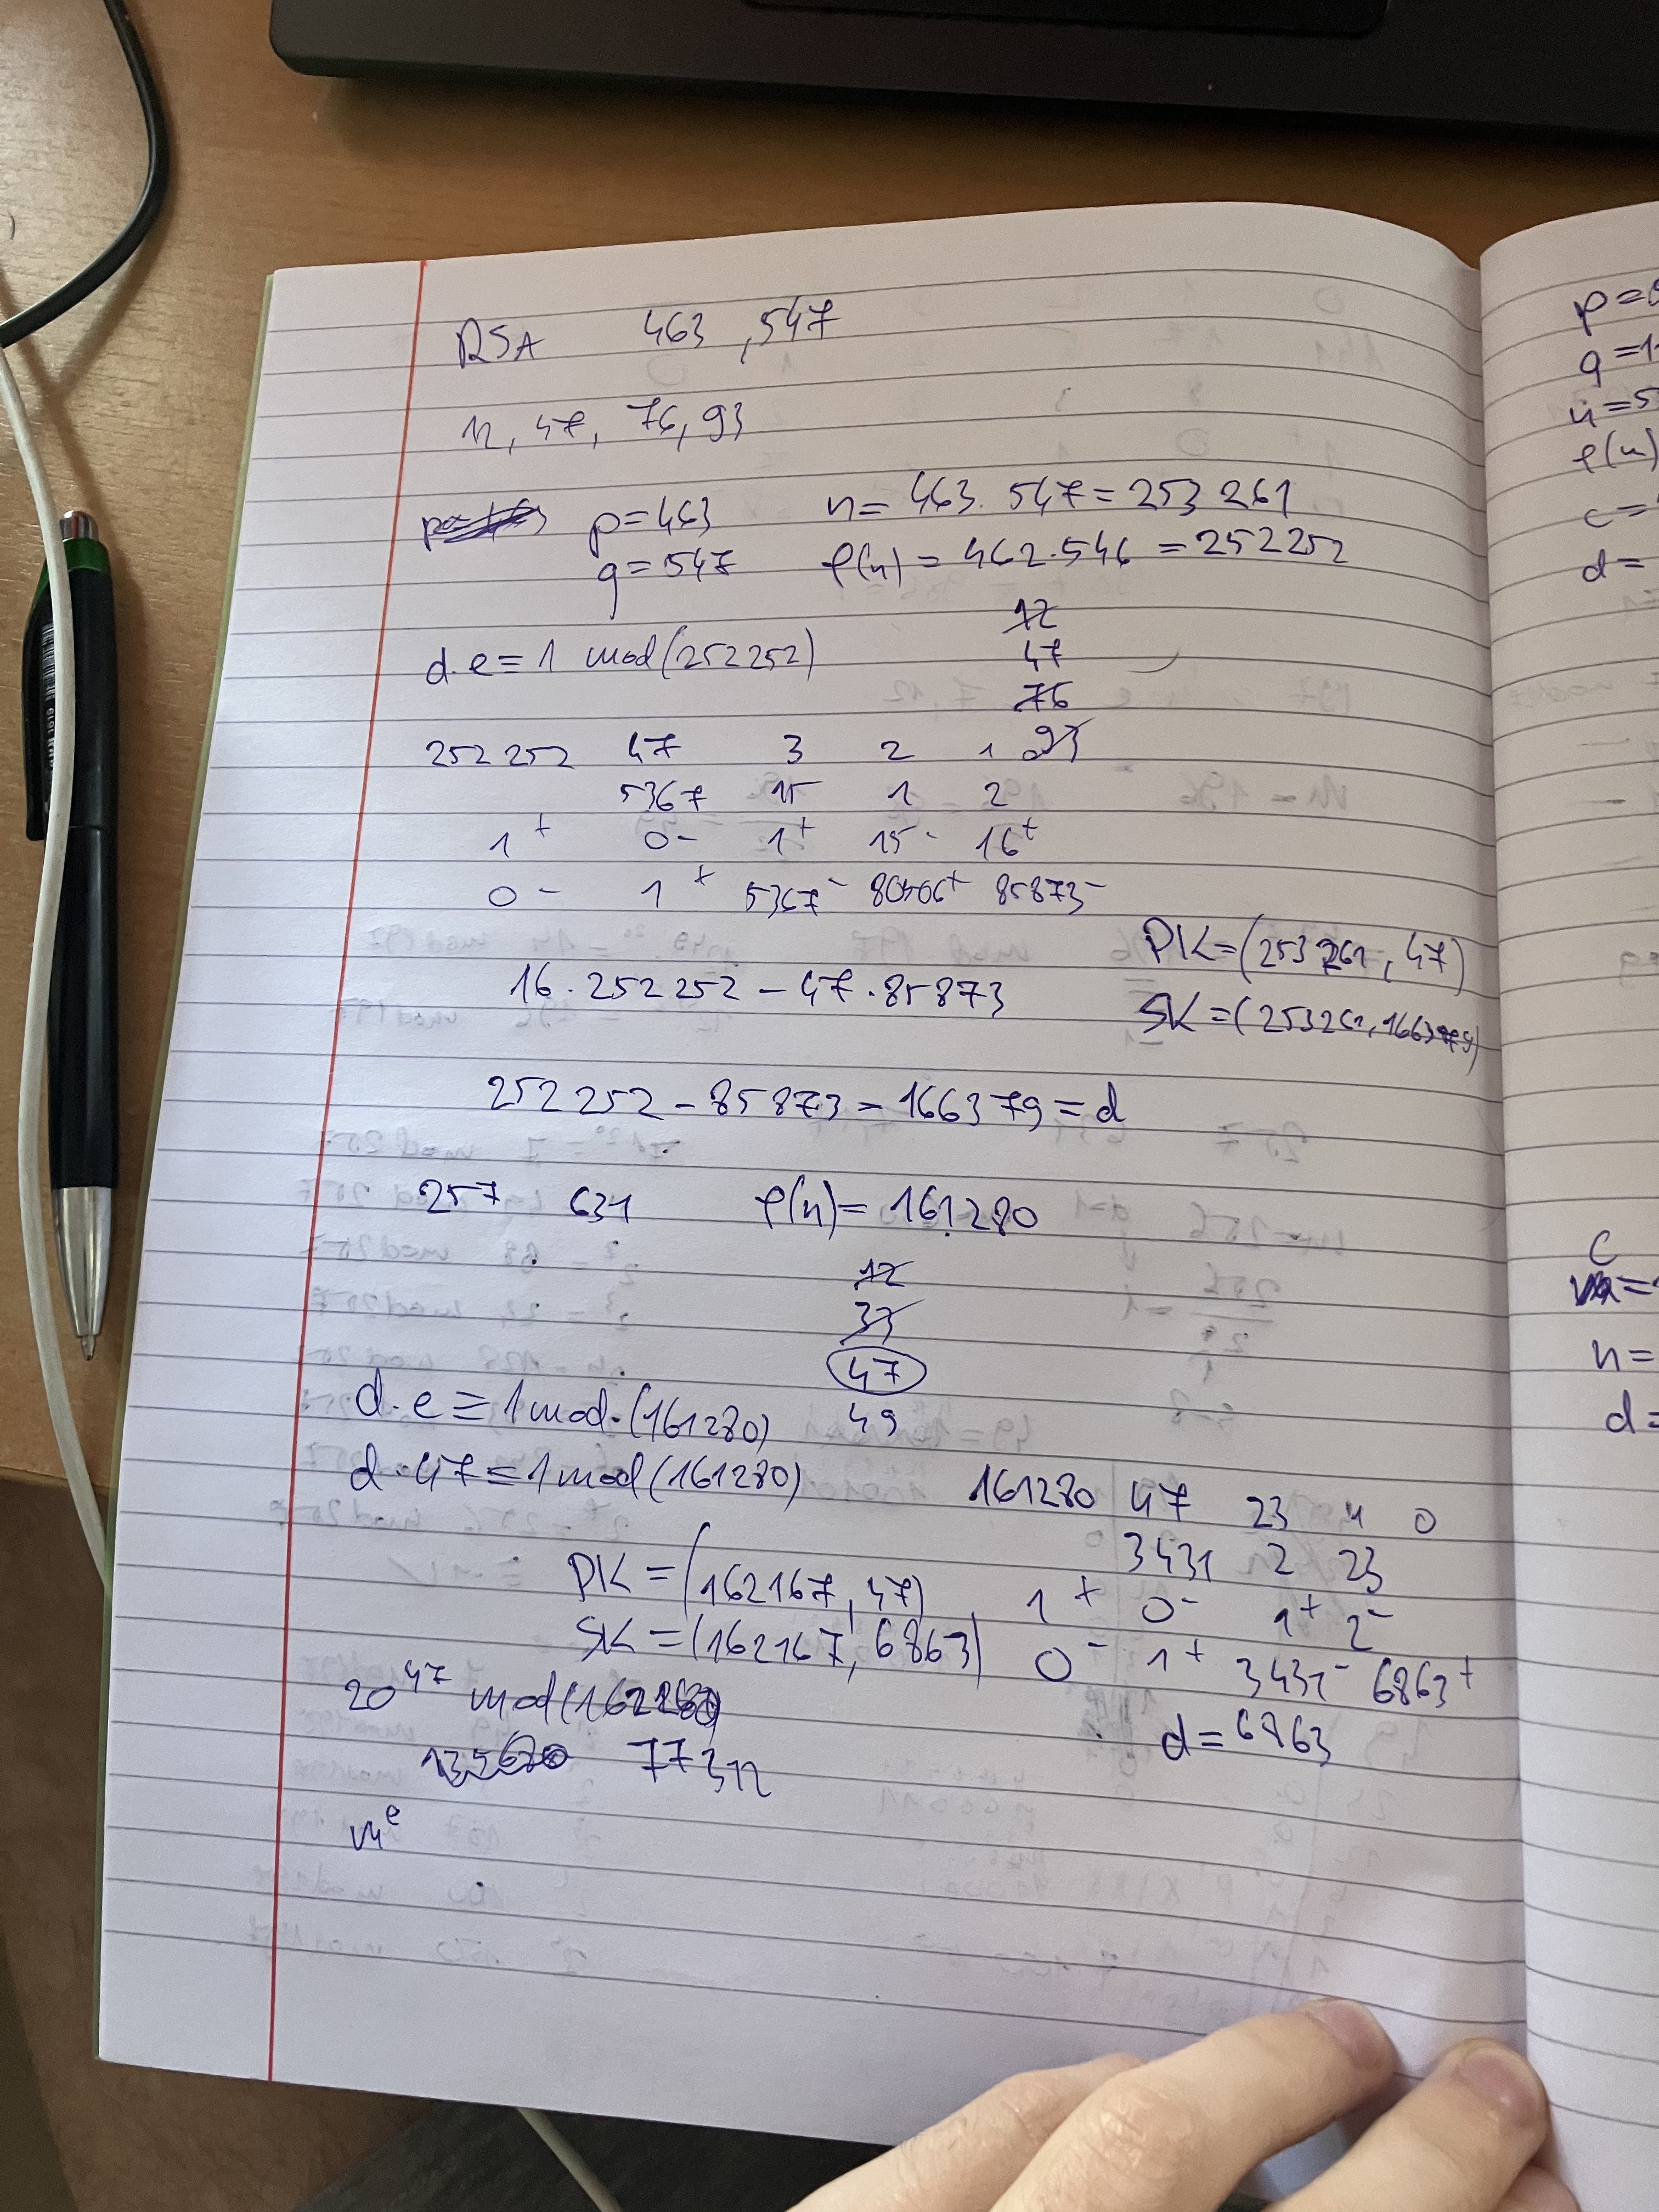 RSA 463 , 547
12, 47, 76, 93
p=463 n= 463. 547=253 261
q=547 φ(n) = 462.546 = 252252
12
d.e=1 mod(252252) 47
76
252252 47 3 2 1 93
5367 15 1 2
1+ 0- 1+ 15- 16+
0- 1+ 5367- 80506+ 85873-
PK=(253261, 47)
16.252252-47.85873
SK=(253261,166379)
252252-85873=166379=d
257 631 φ(n)=161280
12
37
47
d.e≡1mod.(161280) 49
d.47≡1mod(161280)
161280 47 23 1 0
3431 2 23
PK=(162167, 47) 1+ 0- 1+ 2-
SK=(162167, 6863) 0- 1+ 3431- 6863+
20^47 mod(
d=6863
77312
m^e
p=
q=1
n=5
φ(n)
c=
d=
C
n=
d=